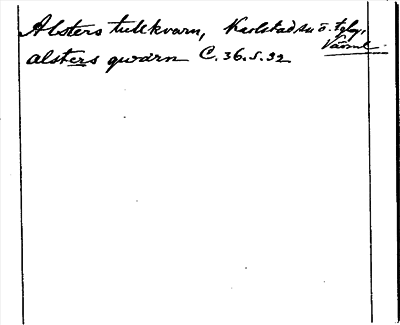 Alsters tullkvarn, Karlstads ö. tglag,
Värml.
alsters qwarn C. 36. s. 32